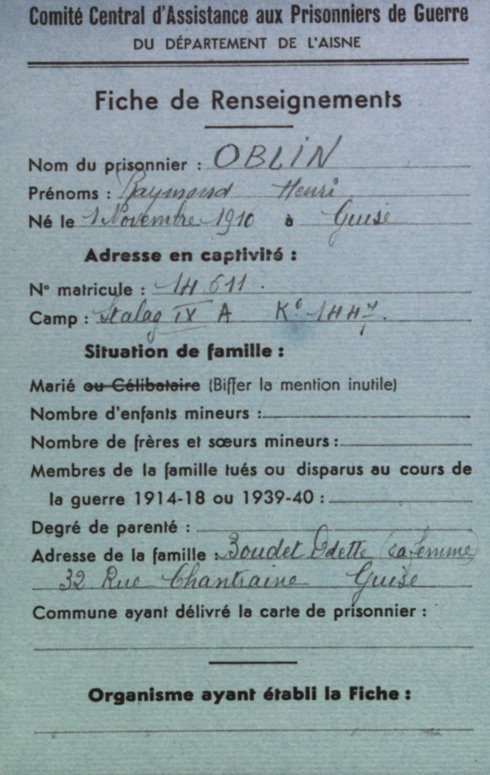 Comité Central d'Assistance aux Prisonniers de Guerre
DU DÉPARTEMENT DE L'AISNE
Fiche de Renseignements
Nom du prisonnier : OBLIN
Prénoms : Raymond Henri
Né le 1 Novembre 1910 à Guise
Adresse en captivité :
N° matricule : 14.511.
Camp : Stalag IX A Ko 1447.
Situation de famille :
Marié ou Célibataire (Biffer la mention inutile)
Nombre d'enfants mineurs :
Nombre de frères et sœurs mineurs :
Membres de la famille tués ou disparus au cours de
la guerre 1914-18 ou 1939-40 :
Degré de parenté :
Adresse de la famille : Boudet Odette (sa femme)
32 Rue Chantraine Guise
Commune ayant délivré la carte de prisonnier :
Organisme ayant établi la Fiche :